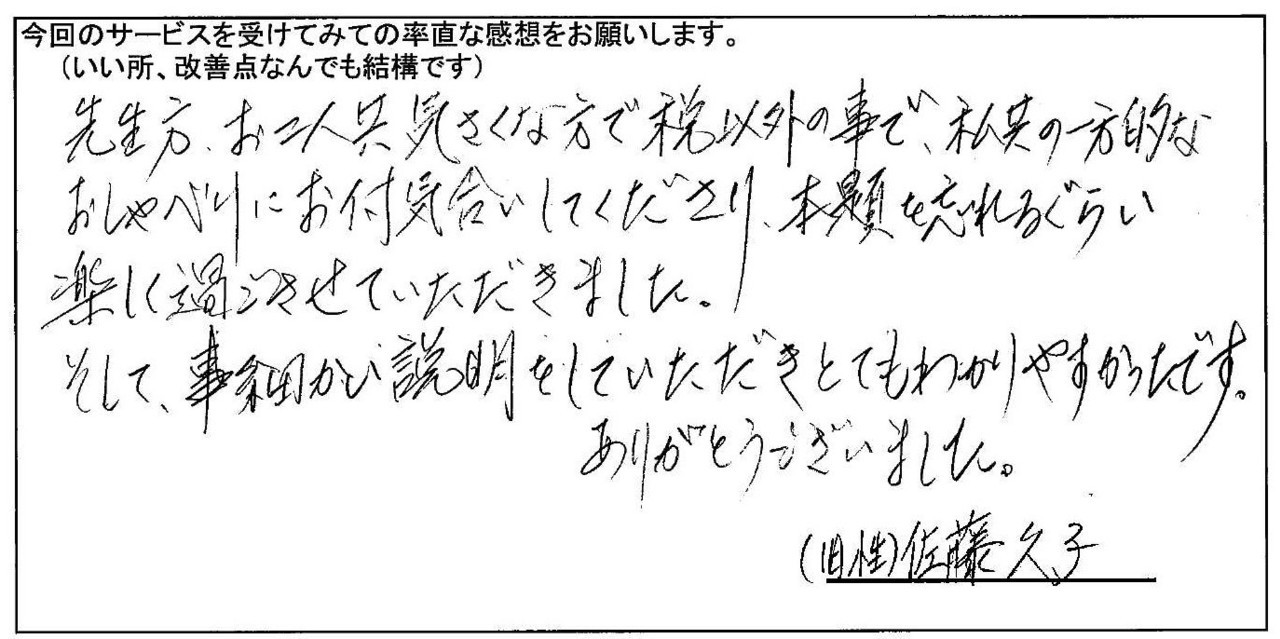 今回のサービスを受けてみての率直な感想をお願いします。
（いい所、改善点なんでも結構です）
先生方、お二人共気さくな方で税以外の事で、私共の一方的な
おしゃべりにお付気合いしてくださり、本題を忘れるぐらい
楽しく過ごさせていただきました。
そして、事細かい説明をしていただきとてもわかりやすかったです。
ありがとうございました。
（旧性）佐藤久子